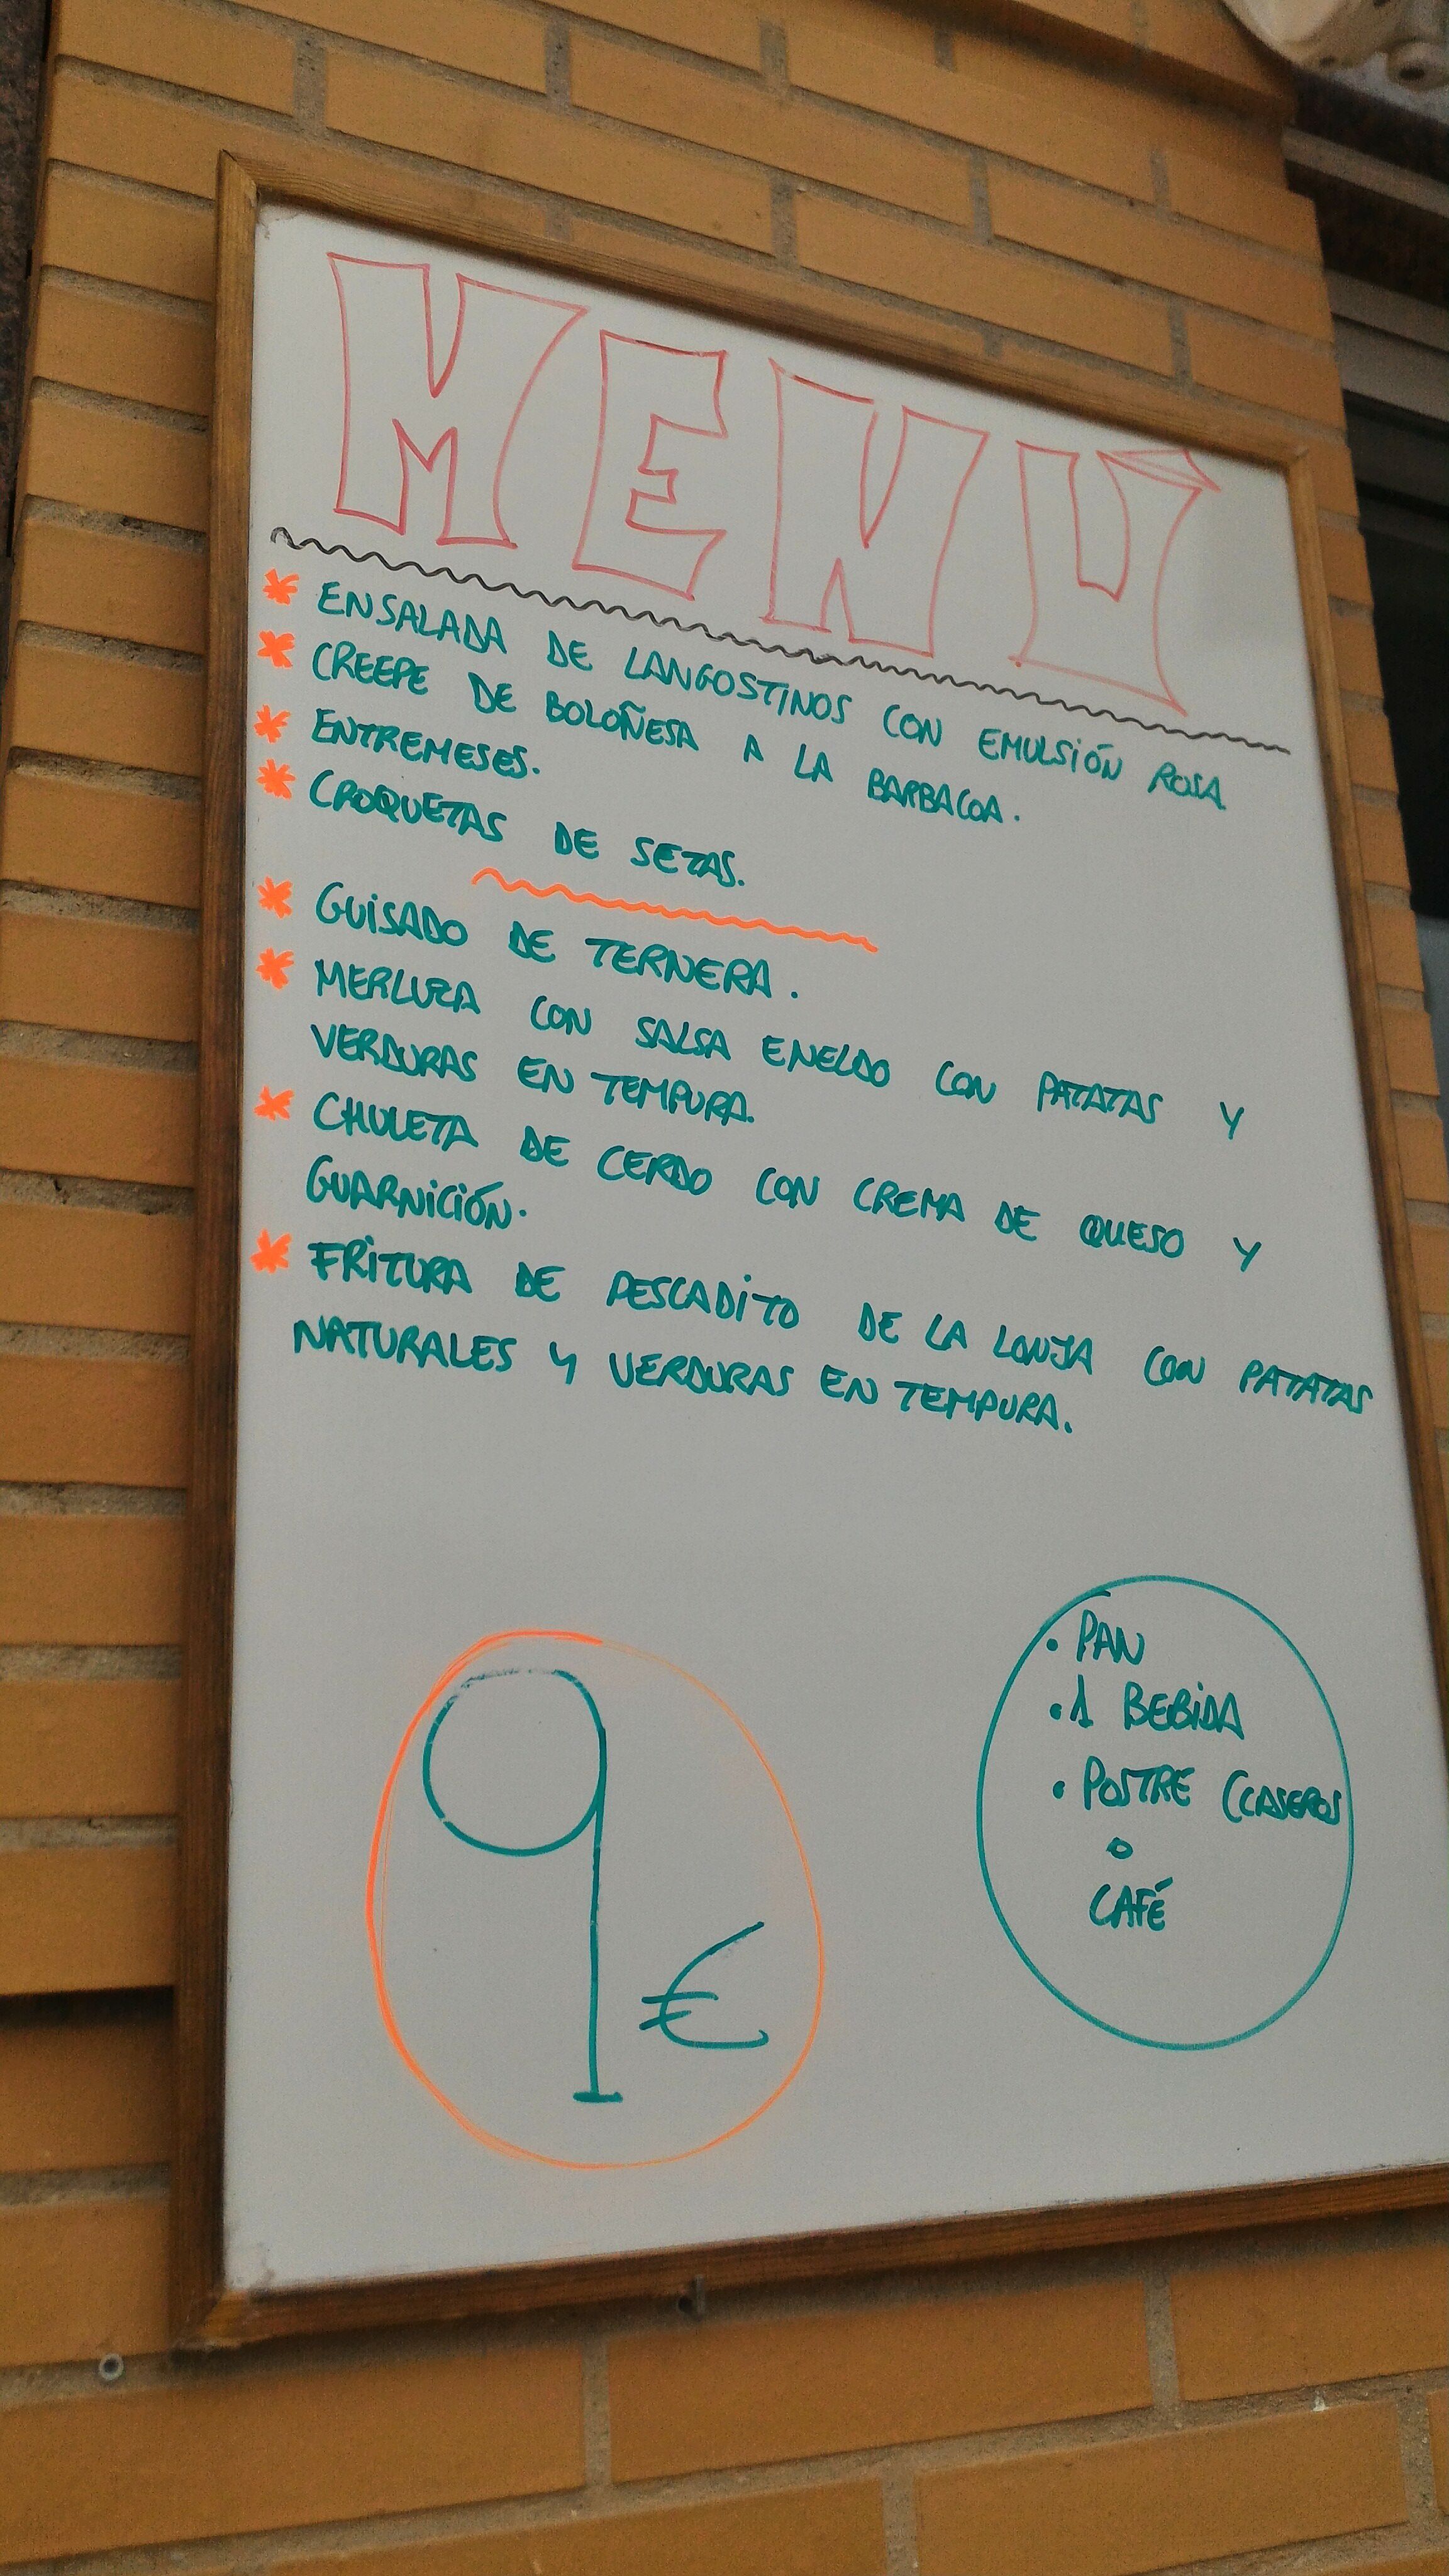 MENÚ
* ENSALADA DE LANGOSTINOS CON EMULSIÓN ROSA
* CREEPE DE BOLOÑESA A LA BARBACOA.
* ENTREMESES.
* CROQUETAS DE SETAS.
* GUISADO DE TERNERA.
* MERLUZA CON SALSA ENELDO CON PATATAS Y
VERDURAS EN TEMPURA.
* CHULETA DE CERDO CON CREMA DE QUESO Y
GUARNICIÓN.
* FRITURA DE PESCADITO DE LA LONJA CON PATATAS
NATURALES Y VERDURAS EN TEMPURA.
9 €
• PAN
• 1 BEBIDA
• POSTRE (CASEROS
O
CAFÉ